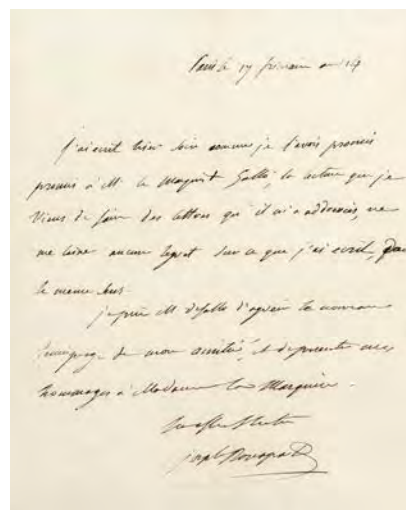 Paris le 17 frimaire an 14
j'ai ecrit hier soir comme je l'avois promis
promis à M. le Marquis de Gallo, la lecture que je
Viens de faire des lettres qu'il m'a adressées, ne
me laisse aucun regret sur ce que j'ai ecrit dans
le meme sens
je prie M de Gallo d'agréer le nouveau
temoignage de mon amitié, et de presenter mes
hommages à Madame la Marquise.
joseph Bonaparte